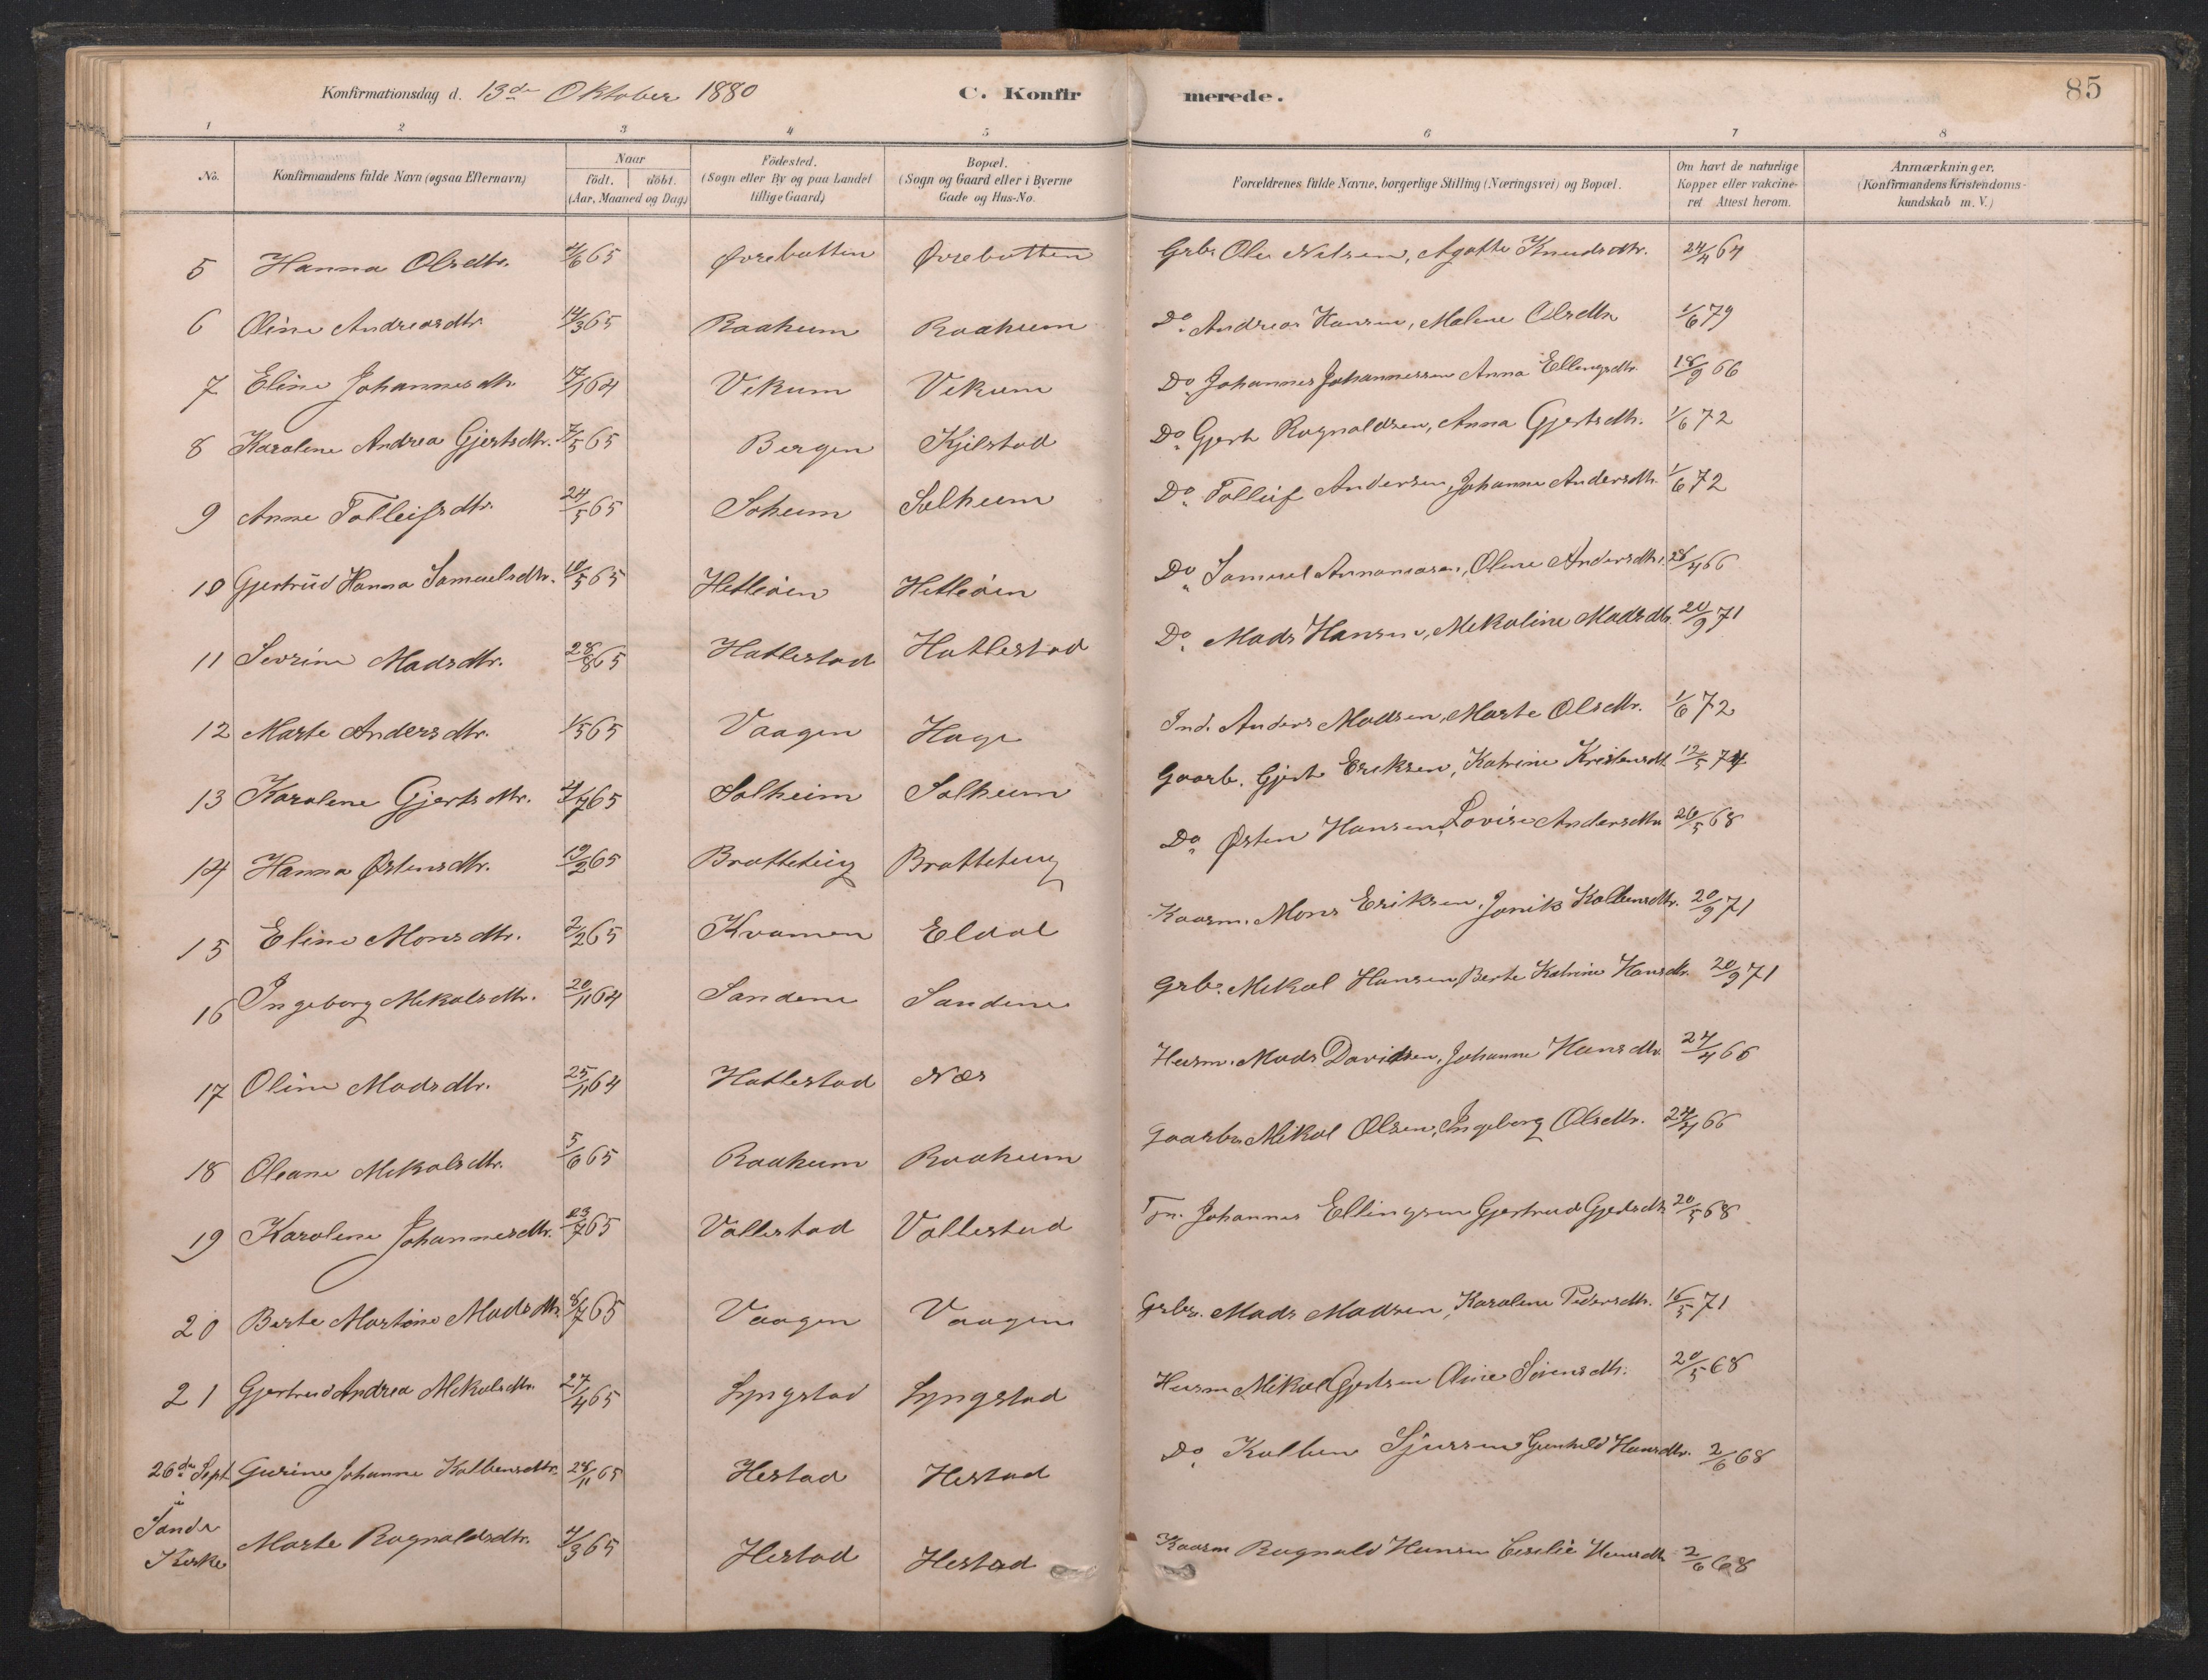 Konfirmationsdag d. 13de Oktober 1880 C. Konfirmerede. 85
1 2 3 4 5 6 7 8
No. Konfirmandens fulde Navn (ogsaa Efternavn) Naar födt. döbt. (Aar, Maaned og Dag.) Födested. (Sogn eller By og paa Landet tillige Gaard) Bopæl. (Sogn og Gaard eller i Byerne Gade og Hus-No. Forældrenes fulde Navne, borgerlige Stilling (Næringsvei) og Bopæl. Om havt de naturlige Kopper eller vakcineret Attest herom. Anmærkninger. (Konfirmandens Kristendomskundskab m. V.)
5 Hanna Olsdtr. 4/6 65 Øvrebotten Øvrebotten Grbr. Ole Nilsen, Agathe Knudsdtr. 24/4 64
6 Oline Andreasdtr. 14/3 65 Raaheim Raaheim Do. Andreas Hansen, Malene Olsdtr. 1/6 79
7 Eline Johannesdtr. 64 Vikum Vikum Do. Johannes Johannessen Anna Ellingsdtr. 18/9 66
8 Karolene Andrea Gjertsdtr. 7/5 65 Bergen Kjelstad Do. Gjert Ragnaldsen, Anna Gjertsdtr. 1/6 72
9 Anne Tolleifsdtr. 24/5 65 Soheim Solheim Do. Tolleif Andersen, Johanne Andersdtr. 1/6 72
10 Gjertrud Hanna Samuelsdtr. 10/5 65 Hetleöen Hetleöen Do. Samuel Annaniasen, Oline Andersdtr. 26/4 66
11 Sevrine Madsdtr. 28/8 65 Hatlestad Hatlestad Do. Mads Hansen, Mekaline Madsdtr. 20/9 71
12 Marte Andersdtr. 1/5 65 Vaagen Hage Ind. Anders Madsen, Marte Olsdtr. 1/6 72
13 Karolene Gjertsdtr. 4/7 65 Solheim Solheim Gaarb. Gjert Eriksen, Katrine Kristensdtr. 12/5 74
14 Hanna Østensdtr. 19/2 65 Bratteteig Bratteteig Do. Østen Hansen, Lovise Andersdtr. 20/5 68
15 Eline Monsdtr. 2/2 65 Kvamen Eldal Kaarm. Mons Eriksen, Jonik Kolbensdtr. 20/9 71
16 Ingeborg Mikalsdtr. 20/11 64 Sandene Sandene Grbr. Mikal Hansen, Berte Katrine Hansdtr. 20/9 71
17 Oline Madsdtr. 25/11 64 Hatlestad Nes Husm. Mads Davidsen, Johanne Hansdtr. 24/4 66
18 Oleane Mikalsdtr. 5/6 65 Raaheim Raaheim Gaarbr. Mikal Olsen, Ingeborg Olsdtr. 24/4 66
19 Karolene Johannesdtr. 23/7 65 Vallestad Vallestad Tjn. Johannes Ellingsen Gjertrud Gjertsdtr. 20/5 68
20 Berte Martine Madsdtr. 8/7 65 Vaagen Vaagen Grbr. Mads Madsen, Karolene Pedersdtr. 16/5 71
21 Gjertrud Andrea Mikalsdtr. 27/4 65 Lyngstad Lyngstad Husm Mikal Gjertsen Oline Sörensdtr. 20/5 68
26de Sept. Gurine Johanne Kolbensdtr. 28/11 65 Hestad Hestad Do. Kolben Sjursen Gunhild Hansdtr. 2/6 68
i
Sande
Kirke Marte Ragnaldsdtr. 4/3 65 Hestad Hestad Kaarm Ragnald Hansen Ceselie Hansdtr. 2/6 68